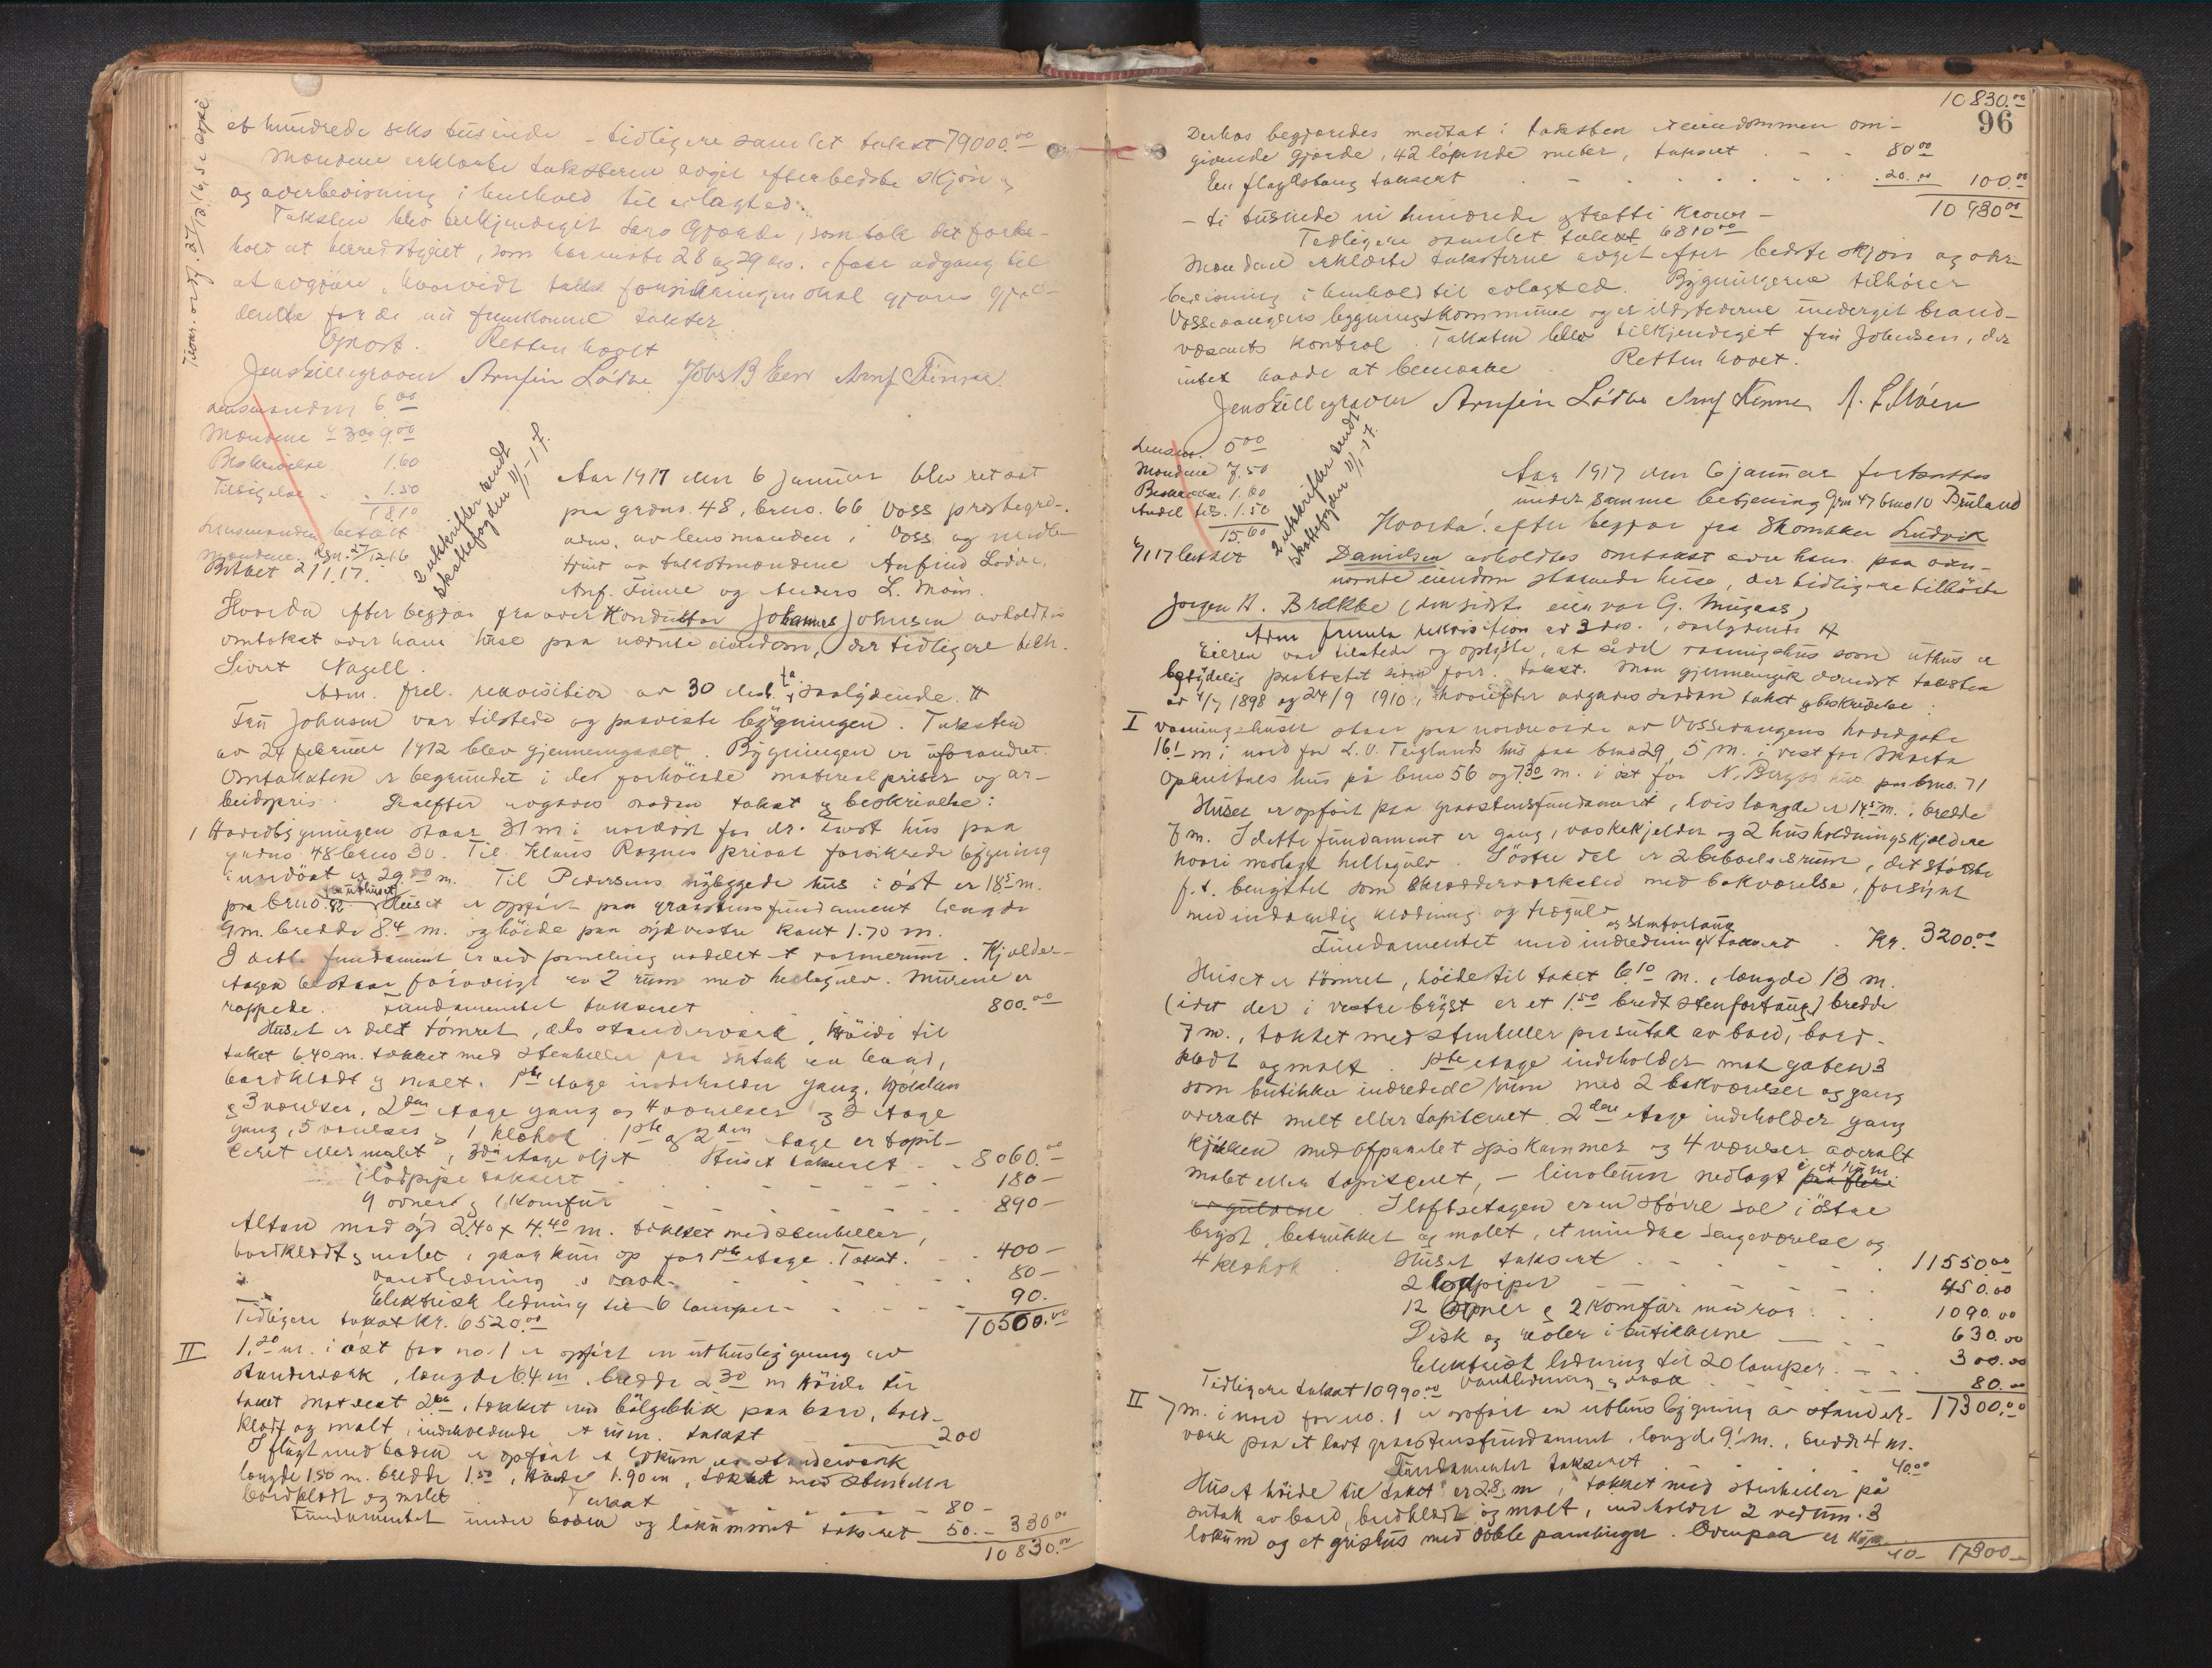 et hundrede seks tusinde - tidligere samlet takst 79000.00
Mændene erklærte taksterne avgit efter bedste skjøn og
overbevisning i henhold til avlagt ed.
Taksten blev bekjendtgit Lars Gjerde, som tok det forbe-
hold at herredstyret, som har møte 28 og 29 ds. faar adgang til
at avgjøre, hvorvidt forsikringen skal gjøres gjæl-
dende for de nu fremkomne takster.
Oplæst. Retten hævet
Jens Gillegraven Arnfin Lødve Arnf Finne
Lensmanden 6.00
Mændene 3.00 9.00
Beskrivelse 1.60
Tilsigelse 1.50
18.10
Lensmanden betalt
Mændene. Rgn. 27/12 16
Betalt 2/1 17.
2 utskrifter sendt
skattefogden 11/1-17.
Aar 1917 den 6 januar blev ret sat
paa grdno. 48, brno. 66 Voss prestegrd.
adm. av lensmanden i Voss og medbe-
tjent av takstmændene Arnfind Lødve,
Arnf. Finne og Anders L. Moen.
Hvorda efter begjær fra overkonduktør Johannes Johnsen avholdtes
omtakst over hans huse paa nævnte eiendom, der tidligere tilh.
Sivert Nagell.
Adm. frel. rekvisition av 30 dec. saalydende #
Fru Johnsen var tilstede og paaviste bygningen. Taksten
av 24 februar 1912 blev gjennemgaaet. Bygningen er uforandret.
Omtaksten er begrundet i de forhøiede materialpriser og ar-
beidspris. Derefter avgaves saadan takst og beskrivelse:
1 Hovedbygningen staar 31 m i nordøst for dr. Kvost hus paa
grdno. 48 brno 30. Til Klaus Rognes privat forsikrede bygning
i nordøst er 29.00 m. Til Pedersens nybyggede hus i øst er 18.5 m.
paa brno. 82. Huset er opført paa graastensfundament længde
9 m. bredde 8.4 m. og høide paa sydvestre kant 1.70 m.
I dette fundament er ved panelning avdelt et værmerum. Kjelder-
etagen bestaar forøvrigt av 2 rum med hellegulv. Murene er
rappede. Fundamentet taksert 800.00
Huset er delt tømret, dels standerverk, høide til
taket 6.40 m. tækket med stenheller paa sutak av bord,
bordklædt og malt. 1ste etage indeholder gang, kjøkken
og 3 værelser, 2den etage gang og 4 værelser og 3 etage
gang, 5 værelser og 1 klæskot. 1ste og 2den etage er tapit-
ceret eller malet, 3die etage oljet Huset taksert - - 8060.00
1 lødpipe taksert - - 180 -
9 ovner og 1 komfur - - 890 -
Altan mod syd 2.40 x 4.40 m. tækket med stenheller,
bordklædt og malet, gaar kun op for 1ste etage. Takst. - - 400 -
Vandledning og vask - - 80 -
Elektrisk ledning til 6 lamper - - 90.
Tidligere takst kr. 6520.00 10500.00
II 1.20 m. i øst for no. 1 er opført en uthusbygning av
standerverk, længde 6.4 m. bredde 2.30 m høide til
taket mot vest 2 m, tækket med bølgeblik paa bord, bord-
klædt og malt, indeholdende et rum. takst - 200
I flugt med boden er opført et lokum av standerverk
længde 1.50 m. bredde 1.50, høide 1.90 m, tækket med stenheller
bordklædt og malet. Taksert - - 80 -
Fundamentet under boden og lokummet taksert 50. - 330.00
10830.00
10830.00
96
Derhos begjærdes medtat i taksten eiendommen om-
givende gjerde, 42 løpende meter, taksert - - 80.00
En flagstang taksert - - 20.00 100.00
- ti tusinde ni hundrede og tretti kroner - 10930.00
Tidligere samlet takst 6810.00
Mændene erklærte taksterne avgit efter bedste skjøn og over-
bevisning i henhold til avlagt ed. Bygningerne tilhører
Vossevangens bygningskommune og er ildstederne undergit brand-
væsenets kontrol. Taksten blev tilkjendegit fru Johnsen, der
intet havde at bemerke. Retten hævet.
Jens Gillegraven Arnfin Lødve Arnf Finne A. L. Moen
Lensm. 5.00
Mændene 7.50
Beskrivelse 1.60
Andel tils. 1.50
15.60
6/1 17 betalt
2 utskrifter sendt
skattefogden 11/1-17.
Aar 1917 den 6 januar fortsattes
under samme betjening grn 47 brno 10 Bruland
Hvorda: efter begjær fra skomaker Ludvik
Danielsen avholdtes omtakst over hans paa oven-
nævnte eiendom staaende huse, der tidligere tilhørte
Jørgen A. Brekke (den sidste eier var G. Mugaas)
Adm fremla rekvisition av 3 ds., saalydende #
Eieren var tilstede og oplyste, at saavel vaaningshus som uthus er
betydelig paakostet siden forr. takst. Man gjennemgik dernæst taksten
av 4/7 1898 og 24/9 1910, hvorefter avgaves saadan takst og beskrivelse:
I Vaaningshuset staar paa nordre side av Vossevangens hovedgate
16.1 m. i nord for L. O. Teiglands hus paa brno 29, 5 m. i vest for Marta
Opheims hus på brno 56 og 7.30 m. i øst for N. Bergos hus paa brno. 71
Huset er opført paa graastensfundament, hvis længde er 14.5 m., bredde
7 m. I dette fundament er gang, vaskekjelder og 2 husholdningskjeldere
hvori nedlagt hellegulv. I østre del er 2 beboelsesrum, det største
f. t. benyttet som skrædderverksted med bakværelse, forsynt
med indvendig klædning og trægulv
og stenfortaug
Fundamentet med indredning taksert - Kr. 3200.00
Huset er tømret, høide til taket 6.10 m., længde 13 m.
(idet der i vestre bryst er et 1.50 bredt stenfortaug) bredde
7 m., tækket med stenheller paa sutak av bord, bord-
klædt og malt. 1ste etage indeholder mot gaten 3
som butikker indredede rum med 2 bakværelser og gang
overalt malt eller tapiceret. 2den etage indeholder gang
kjøkken med ofpanelet spiskammer og 4 værelser overalt
malet eller tapiceret, - linoleum nedlagt i et rum
I loftsetagen er en større sal i østre
bryst, betrukket og malet, et mindre sengeværelse og
4 klæskot. Huset taksert - - 11550.00
2 lødpiper - - 450.00
12 ovner og 2 komfur med rør - 1090.00
Disk og reoler i butikkerne - 630.00
Elektrisk ledning til 20 lamper - - 300.00
Tidligere takst 10990.00 Vandledning og vask - 80.00
17300.00
II 7 m. i nord for no. 1 er opført en uthusbygning av stander-
verk paa et lavt graastensfundament, længde 9.1 m., bredde 4 m.
Fundamentet taksert - 40.00
Huset høide til taket er 2.8 m, tækket med stenheller på
sutak av bord, bordklædt og malt, indeholder 2 vedrum. 3
lokum og et grishus med doble panelinger. Ovenpaa er
40 - 17300 -